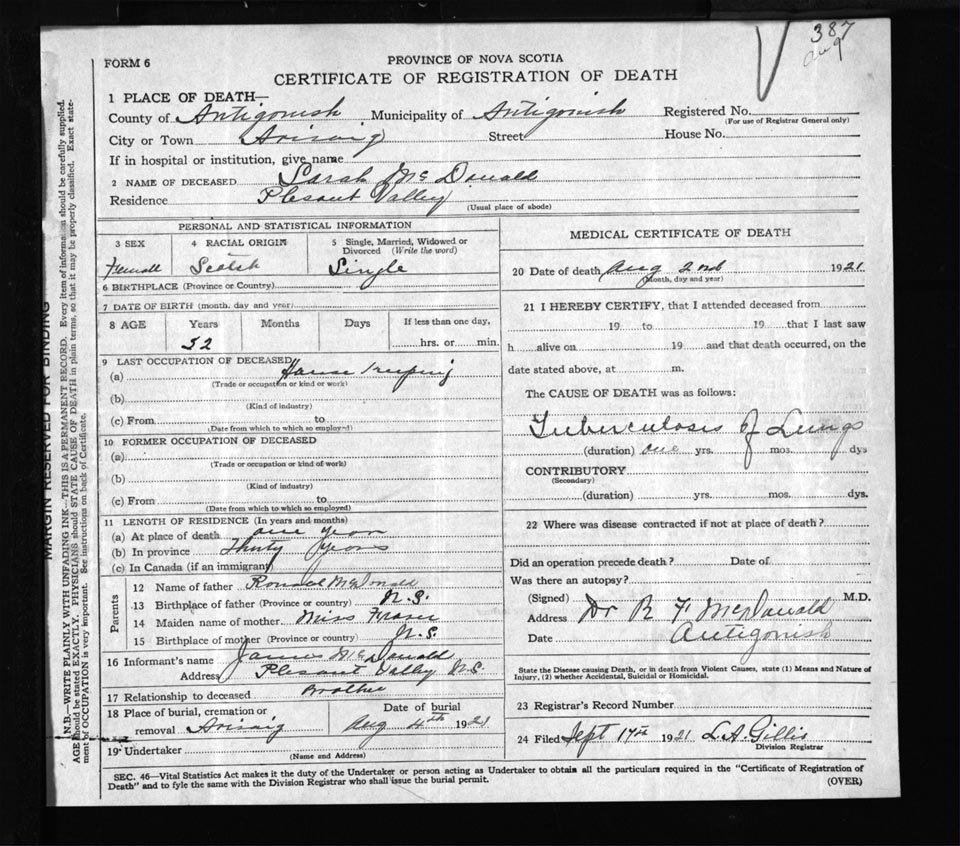 387
Aug
FORM 6
PROVINCE OF NOVA SCOTIA
CERTIFICATE OF REGISTRATION OF DEATH
1 PLACE OF DEATH—
County of Antigonish Municipality of Antigonish Registered No.
(For use of Registrar General only)
City or Town Arisaig Street House No.
If in hospital or institution, give name
2 NAME OF DECEASED Sarah McDonald
Residence Plesant Valley
(Usual place of abode)
PERSONAL AND STATISTICAL INFORMATION
3 SEX 4 RACIAL ORIGIN 5 Single, Married, Widowed or Divorced (Write the word)
Female Scotch Single
6 BIRTHPLACE (Province or Country)
7 DATE OF BIRTH (month, day and year)
8 AGE Years Months Days If less than one day,
52 hrs. or min.
9 LAST OCCUPATION OF DECEASED
(a) House Keeping
(Trade or occupation or kind or work)
(b)
(Kind of industry)
(c) From to
(Date from which to which so employed)
10 FORMER OCCUPATION OF DECEASED
(a)
(Trade or occupation or kind of work)
(b)
(Kind of industry)
(c) From to
(Date from which to which so employed)
11 LENGTH OF RESIDENCE (In years and months)
(a) At place of death one year
(b) In province Thirty years
(c) In Canada (if an immigrant)
Parents
12 Name of father Ronald McDonald
13 Birthplace of father (Province or country) N.S.
14 Maiden name of mother Miss Fraser
15 Birthplace of mother (Province or country) N.S.
16 Informant's name James McDonald
Address Plesant Valley N.S.
17 Relationship to deceased Brother
18 Place of burial, cremation or removal Arisaig
Date of burial
Aug 4th 1921
19 Undertaker
(Name and Address)
MEDICAL CERTIFICATE OF DEATH
20 Date of death Aug 2nd 1921
(Month, day and year)
21 I HEREBY CERTIFY, that I attended deceased from
19 to 19 that I last saw
h alive on 19 and that death occurred, on the
date stated above, at m.
The CAUSE OF DEATH was as follows:
Tuberculosis of Lungs
(duration) one yrs. mos. dys
CONTRIBUTORY
(Secondary)
(duration) yrs. mos. dys.
22 Where was disease contracted if not at place of death?
Did an operation precede death? Date of
Was there an autopsy?
(Signed) Dr R F McDonald M.D.
Address Antigonish
Date
State the Disease causing Death, or in death from Violent Causes, state (1) Means and Nature of
Injury, (2) whether Accidental, Suicidal or Homicidal.
23 Registrar's Record Number
24 Filed Sept 17th 1921 L.A. Gillis
Division Registrar
SEC. 46—Vital Statistics Act makes it the duty of the Undertaker or person acting as Undertaker to obtain all the particulars required in the "Certificate of Registration of
Death" and to fyle the same with the Division Registrar who shall issue the burial permit.
(OVER)
MARGIN RESERVED FOR BINDING
N.B.—WRITE PLAINLY WITH UNFADING INK—THIS IS A PERMANENT RECORD. Every item of information should be carefully supplied.
AGE should be stated EXACTLY. PHYSICIANS should STATE CAUSE OF DEATH in plain terms, so that it may be properly classified. Exact state-
ment of OCCUPATION is very important. See instructions on back of Certificate.